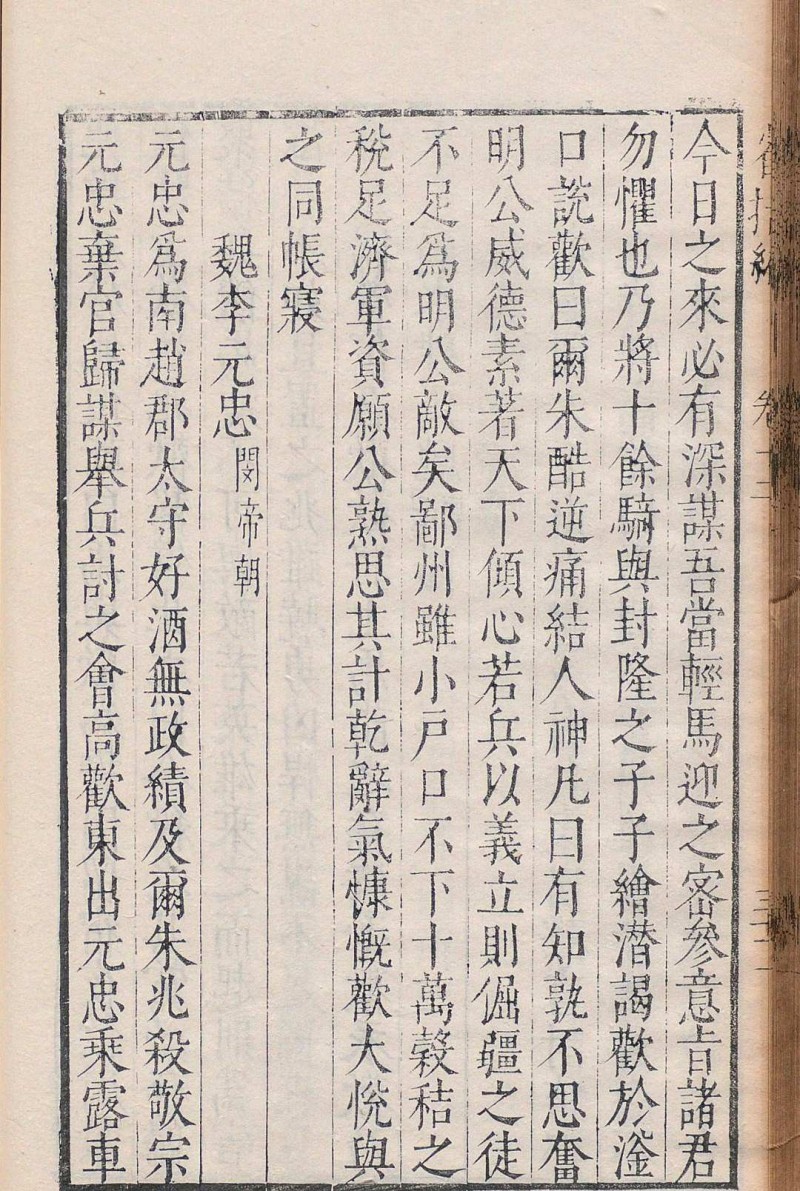 今日之來必有深謀吾當輕馬迎之密參意旨諸君
勿懼也乃將十餘騎與封隆之子子繪潛謁歡於滏
口說歡曰爾朱酷逆痛結人神凡曰有知孰不思奮
明公威德素著天下傾心若兵以義立則倔彊之徒
不足爲明公敵矣鄙州雖小戸口不下十萬穀秸之
稅足濟軍資願公熟思其計乾辭氣慷慨歡大悅與
之同帳寢
魏李元忠 閔帝朝
元忠爲南趙郡太守好酒無政績及爾朱兆殺敬宗
元忠棄官歸謀舉兵討之會高歡東出元忠乘露車